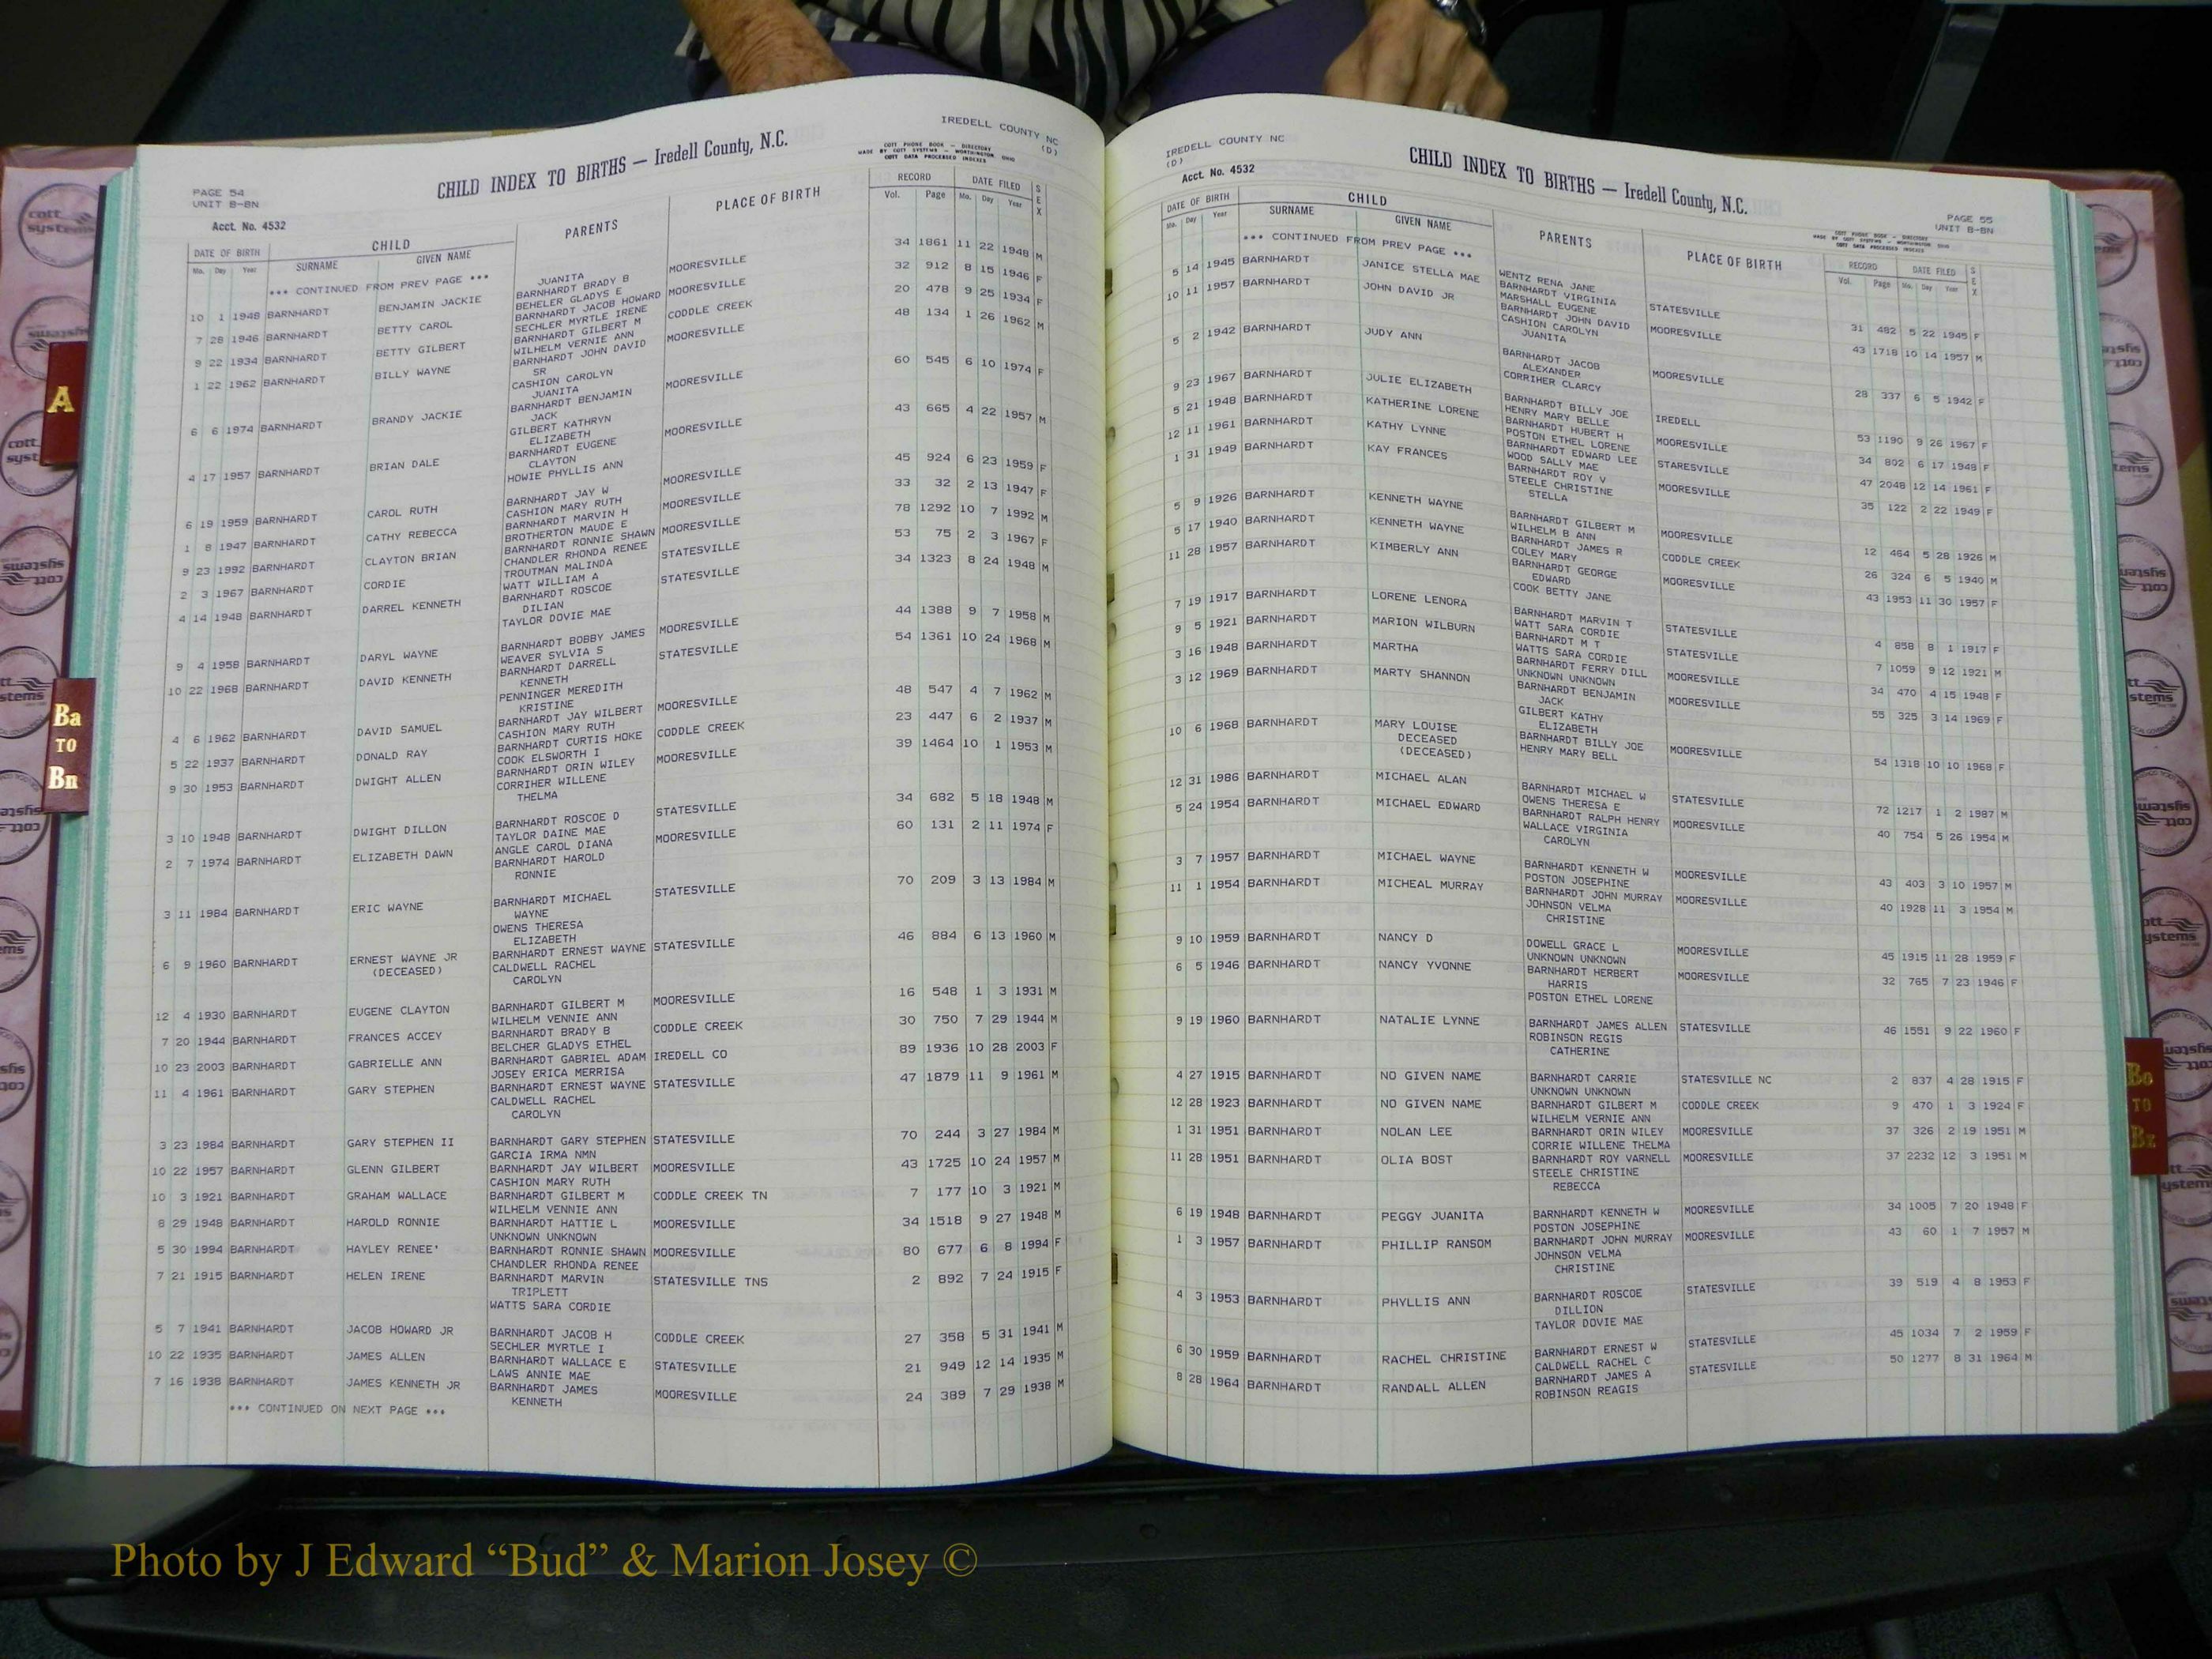 IREDELL COUNTY NC
(D)
CHILD INDEX TO BIRTHS — Iredell County, N.C.
COTT PHONE BOOK — DIRECTORY
MADE BY COTT SYSTEMS — WORTHINGTON, OHIO
COTT DATA PROCESSED INDEXES
PAGE 54
UNIT B-BN
Acct. No. 4532
DATE OF BIRTH CHILD PARENTS PLACE OF BIRTH RECORD DATE FILED SEX
Mo. Day Year SURNAME GIVEN NAME Vol. Page Mo. Day Year
*** CONTINUED FROM PREV PAGE ***
JUANITA
10 1 1948 BARNHARDT BENJAMIN JACKIE BARNHARDT BRADY B MOORESVILLE 34 1861 11 22 1948 M
BEHELER GLADYS E
7 28 1946 BARNHARDT BETTY CAROL BARNHARDT JACOB HOWARD MOORESVILLE 32 912 8 15 1946 F
SECHLER MYRTLE IRENE
9 22 1934 BARNHARDT BETTY GILBERT BARNHARDT GILBERT M CODDLE CREEK 20 478 9 25 1934 F
WILHELM VERNIE ANN
1 22 1962 BARNHARDT BILLY WAYNE BARNHARDT JOHN DAVID MOORESVILLE 48 134 1 26 1962 M
SR
CASHION CAROLYN
JUANITA
6 6 1974 BARNHARDT BRANDY JACKIE BARNHARDT BENJAMIN MOORESVILLE 60 545 6 10 1974 F
JACK
GILBERT KATHRYN
ELIZABETH
4 17 1957 BARNHARDT BRIAN DALE BARNHARDT EUGENE MOORESVILLE 43 665 4 22 1957 M
CLAYTON
HOWIE PHYLLIS ANN
6 19 1959 BARNHARDT CAROL RUTH BARNHARDT JAY W MOORESVILLE 45 924 6 23 1959 F
CASHION MARY RUTH
1 8 1947 BARNHARDT CATHY REBECCA BARNHARDT MARVIN H MOORESVILLE 33 32 2 13 1947 F
BROTHERTON MAUDE E
9 23 1992 BARNHARDT CLAYTON BRIAN BARNHARDT RONNIE SHAWN MOORESVILLE 78 1292 10 7 1992 M
CHANDLER RHONDA RENEE
2 3 1967 BARNHARDT CORDIE TROUTMAN MALINDA STATESVILLE 53 75 2 3 1967 F
WATT WILLIAM A
4 14 1948 BARNHARDT DARREL KENNETH BARNHARDT ROSCOE STATESVILLE 34 1323 8 24 1948 M
DILIAN
TAYLOR DOVIE MAE
9 4 1958 BARNHARDT DARYL WAYNE BARNHARDT BOBBY JAMES MOORESVILLE 44 1388 9 7 1958 M
WEAVER SYLVIA S
10 22 1968 BARNHARDT DAVID KENNETH BARNHARDT DARRELL STATESVILLE 54 1361 10 24 1968 M
KENNETH
PENNINGER MEREDITH
KRISTINE
4 6 1962 BARNHARDT DAVID SAMUEL BARNHARDT JAY WILBERT MOORESVILLE 48 547 4 7 1962 M
CASHION MARY RUTH
5 22 1937 BARNHARDT DONALD RAY BARNHARDT CURTIS HOKE CODDLE CREEK 23 447 6 2 1937 M
COOK ELSWORTH I
9 30 1953 BARNHARDT DWIGHT ALLEN BARNHARDT ORIN WILEY MOORESVILLE 39 1464 10 1 1953 M
CORRIHER WILLENE
THELMA
3 10 1948 BARNHARDT DWIGHT DILLON BARNHARDT ROSCOE D STATESVILLE 34 682 5 18 1948 M
TAYLOR DAINE MAE
2 7 1974 BARNHARDT ELIZABETH DAWN ANGLE CAROL DIANA MOORESVILLE 60 131 2 11 1974 F
BARNHARDT HAROLD
RONNIE
3 11 1984 BARNHARDT ERIC WAYNE BARNHARDT MICHAEL STATESVILLE 70 209 3 13 1984 M
WAYNE
OWENS THERESA
ELIZABETH
6 9 1960 BARNHARDT ERNEST WAYNE JR BARNHARDT ERNEST WAYNE STATESVILLE 46 884 6 13 1960 M
(DECEASED) CALDWELL RACHEL
CAROLYN
12 4 1930 BARNHARDT EUGENE CLAYTON BARNHARDT GILBERT M MOORESVILLE 16 548 1 3 1931 M
WILHELM VENNIE ANN
7 20 1944 BARNHARDT FRANCES ACCEY BARNHARDT BRADY B CODDLE CREEK 30 750 7 29 1944 M
BELCHER GLADYS ETHEL
10 23 2003 BARNHARDT GABRIELLE ANN BARNHARDT GABRIEL ADAM IREDELL CO 89 1936 10 28 2003 F
JOSEY ERICA MERRISA
11 4 1961 BARNHARDT GARY STEPHEN BARNHARDT ERNEST WAYNE STATESVILLE 47 1879 11 9 1961 M
CALDWELL RACHEL
CAROLYN
3 23 1984 BARNHARDT GARY STEPHEN II BARNHARDT GARY STEPHEN STATESVILLE 70 244 3 27 1984 M
GARCIA IRMA NMN
10 22 1957 BARNHARDT GLENN GILBERT BARNHARDT JAY WILBERT MOORESVILLE 43 1725 10 24 1957 M
CASHION MARY RUTH
10 3 1921 BARNHARDT GRAHAM WALLACE BARNHARDT GILBERT M CODDLE CREEK TN 7 177 10 3 1921 M
WILHELM VENNIE ANN
8 29 1948 BARNHARDT HAROLD RONNIE BARNHARDT HATTIE L MOORESVILLE 34 1518 9 27 1948 M
UNKNOWN UNKNOWN
5 30 1994 BARNHARDT HAYLEY RENEE' BARNHARDT RONNIE SHAWN MOORESVILLE 80 677 6 8 1994 F
CHANDLER RHONDA RENEE
7 21 1915 BARNHARDT HELEN IRENE BARNHARDT MARVIN STATESVILLE TNS 2 892 7 24 1915 F
TRIPLETT
WATTS SARA CORDIE
5 7 1941 BARNHARDT JACOB HOWARD JR BARNHARDT JACOB H CODDLE CREEK 27 358 5 31 1941 M
SECHLER MYRTLE I
10 22 1935 BARNHARDT JAMES ALLEN BARNHARDT WALLACE E STATESVILLE 21 949 12 14 1935 M
LAWS ANNIE MAE
7 16 1938 BARNHARDT JAMES KENNETH JR BARNHARDT JAMES MOORESVILLE 24 389 7 29 1938 M
KENNETH
*** CONTINUED ON NEXT PAGE ***
IREDELL COUNTY NC
(D)
CHILD INDEX TO BIRTHS — Iredell County, N.C.
Acct. No. 4532
PAGE 55
UNIT B-BN
COTT PHONE BOOK — DIRECTORY
MADE BY COTT SYSTEMS — WORTHINGTON, OHIO
COTT DATA PROCESSED INDEXES
DATE OF BIRTH CHILD PARENTS PLACE OF BIRTH RECORD DATE FILED SEX
Mo. Day Year SURNAME GIVEN NAME Vol. Page Mo. Day Year
*** CONTINUED FROM PREV PAGE ***
WENTZ RENA JANE
5 14 1945 BARNHARDT JANICE STELLA MAE BARNHARDT VIRGINIA STATESVILLE 31 482 5 22 1945 F
MARSHALL EUGENE
10 11 1957 BARNHARDT JOHN DAVID JR BARNHARDT JOHN DAVID MOORESVILLE 43 1718 10 14 1957 M
CASHION CAROLYN
JUANITA
5 2 1942 BARNHARDT JUDY ANN BARNHARDT JACOB MOORESVILLE 28 337 6 5 1942 F
ALEXANDER
CORRIHER CLARCY
9 23 1967 BARNHARDT JULIE ELIZABETH BARNHARDT BILLY JOE IREDELL 53 1190 9 26 1967 F
HENRY MARY BELLE
5 21 1948 BARNHARDT KATHERINE LORENE BARNHARDT HUBERT H MOORESVILLE 34 802 6 17 1948 F
POSTON ETHEL LORENE
12 11 1961 BARNHARDT KATHY LYNNE BARNHARDT EDWARD LEE STARESVILLE 47 2048 12 14 1961 F
WOOD SALLY MAE
1 31 1949 BARNHARDT KAY FRANCES BARNHARDT ROY V MOORESVILLE 35 122 2 22 1949 F
STEELE CHRISTINE
STELLA
5 9 1926 BARNHARDT KENNETH WAYNE BARNHARDT GILBERT M MOORESVILLE 12 464 5 28 1926 M
WILHELM B ANN
5 17 1940 BARNHARDT KENNETH WAYNE BARNHARDT JAMES R CODDLE CREEK 26 324 6 5 1940 M
COLEY MARY
11 28 1957 BARNHARDT KIMBERLY ANN BARNHARDT GEORGE MOORESVILLE 43 1953 11 30 1957 F
EDWARD
COOK BETTY JANE
7 19 1917 BARNHARDT LORENE LENORA BARNHARDT MARVIN T STATESVILLE 4 858 8 1 1917 F
WATT SARA CORDIE
9 5 1921 BARNHARDT MARION WILBURN BARNHARDT M T STATESVILLE 7 1059 9 12 1921 M
WATTS SARA CORDIE
3 16 1948 BARNHARDT MARTHA BARNHARDT FERRY DILL MOORESVILLE 34 470 4 15 1948 F
UNKNOWN UNKNOWN
3 12 1969 BARNHARDT MARTY SHANNON BARNHARDT BENJAMIN MOORESVILLE 55 325 3 14 1969 F
JACK
GILBERT KATHY
ELIZABETH
10 6 1968 BARNHARDT MARY LOUISE BARNHARDT BILLY JOE MOORESVILLE 54 1318 10 10 1968 F
DECEASED HENRY MARY BELL
(DECEASED)
12 31 1986 BARNHARDT MICHAEL ALAN BARNHARDT MICHAEL W STATESVILLE 72 1217 1 2 1987 M
OWENS THERESA E
5 24 1954 BARNHARDT MICHAEL EDWARD BARNHARDT RALPH HENRY MOORESVILLE 40 754 5 26 1954 M
WALLACE VIRGINIA
CAROLYN
3 7 1957 BARNHARDT MICHAEL WAYNE BARNHARDT KENNETH W MOORESVILLE 43 403 3 10 1957 M
POSTON JOSEPHINE
11 1 1954 BARNHARDT MICHEAL MURRAY BARNHARDT JOHN MURRAY MOORESVILLE 40 1928 11 3 1954 M
JOHNSON VELMA
CHRISTINE
9 10 1959 BARNHARDT NANCY D DOWELL GRACE L MOORESVILLE 45 1915 11 28 1959 F
UNKNOWN UNKNOWN
6 5 1946 BARNHARDT NANCY YVONNE BARNHARDT HERBERT MOORESVILLE 32 765 7 23 1946 F
HARRIS
POSTON ETHEL LORENE
9 19 1960 BARNHARDT NATALIE LYNNE BARNHARDT JAMES ALLEN STATESVILLE 46 1551 9 22 1960 F
ROBINSON REGIS
CATHERINE
4 27 1915 BARNHARDT NO GIVEN NAME BARNHARDT CARRIE STATESVILLE NC 2 837 4 28 1915 F
UNKNOWN UNKNOWN
12 28 1923 BARNHARDT NO GIVEN NAME BARNHARDT GILBERT M CODDLE CREEK 9 470 1 3 1924 F
WILHELM VERNIE ANN
1 31 1951 BARNHARDT NOLAN LEE BARNHARDT ORIN WILEY MOORESVILLE 37 326 2 19 1951 M
CORRIE WILLENE THELMA
11 28 1951 BARNHARDT OLIA BOST BARNHARDT ROY VARNELL MOORESVILLE 37 2232 12 3 1951 M
STEELE CHRISTINE
REBECCA
6 19 1948 BARNHARDT PEGGY JUANITA BARNHARDT KENNETH W MOORESVILLE 34 1005 7 20 1948 F
POSTON JOSEPHINE
1 3 1957 BARNHARDT PHILLIP RANSOM BARNHARDT JOHN MURRAY MOORESVILLE 43 60 1 7 1957 M
JOHNSON VELMA
CHRISTINE
4 3 1953 BARNHARDT PHYLLIS ANN BARNHARDT ROSCOE STATESVILLE 39 519 4 8 1953 F
DILLION
TAYLOR DOVIE MAE
6 30 1959 BARNHARDT RACHEL CHRISTINE BARNHARDT ERNEST W STATESVILLE 45 1034 7 2 1959 F
CALDWELL RACHEL C
8 28 1964 BARNHARDT RANDALL ALLEN BARNHARDT JAMES A STATESVILLE 50 1277 8 31 1964 M
ROBINSON REAGIS
A
Ba
TO
Bn
Bo
TO
Bz
cott
systems
Photo by J Edward “Bud” & Marion Josey ©